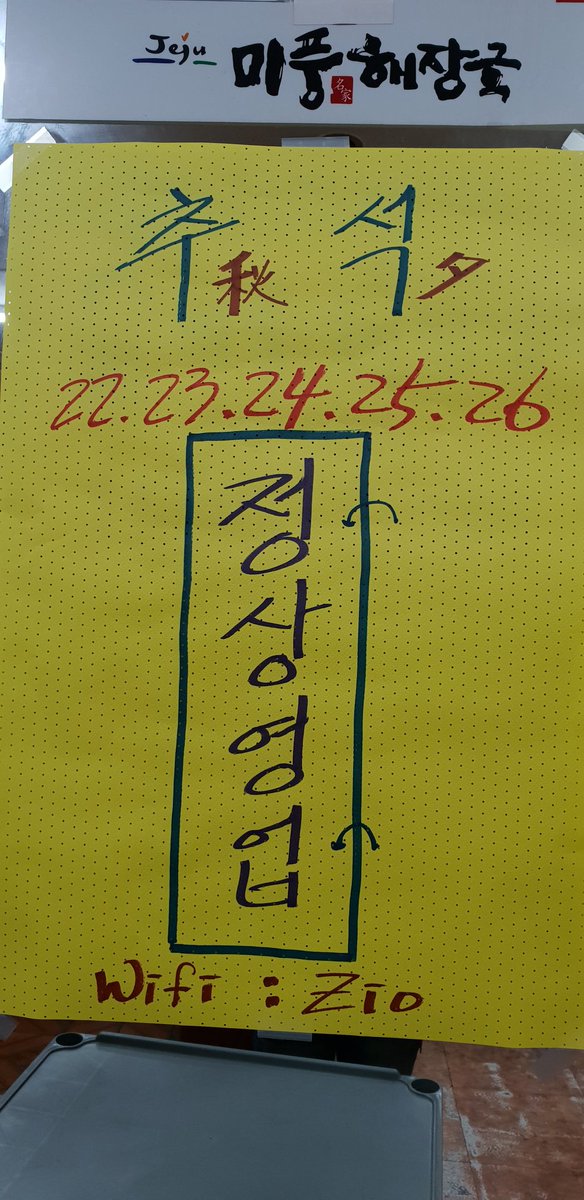 Jeju 미풍 名家 해장국
추秋 석夕
22.23.24.25.26
정
상
영
업
Wifi : Zio